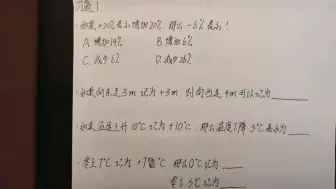 习题1
·如果+20%表示增加20%,那么-6%表示?
A.增加14% B.增加6%
C.减少6% D.减少26%
·如果向东走3m记为+3m 则向西走4m可以记为____
·如果温度上升10℃记为+10℃.那么温度下降5℃表示为____
·零上7℃记为+7℃ 那么0℃记为____
零下5℃记为____